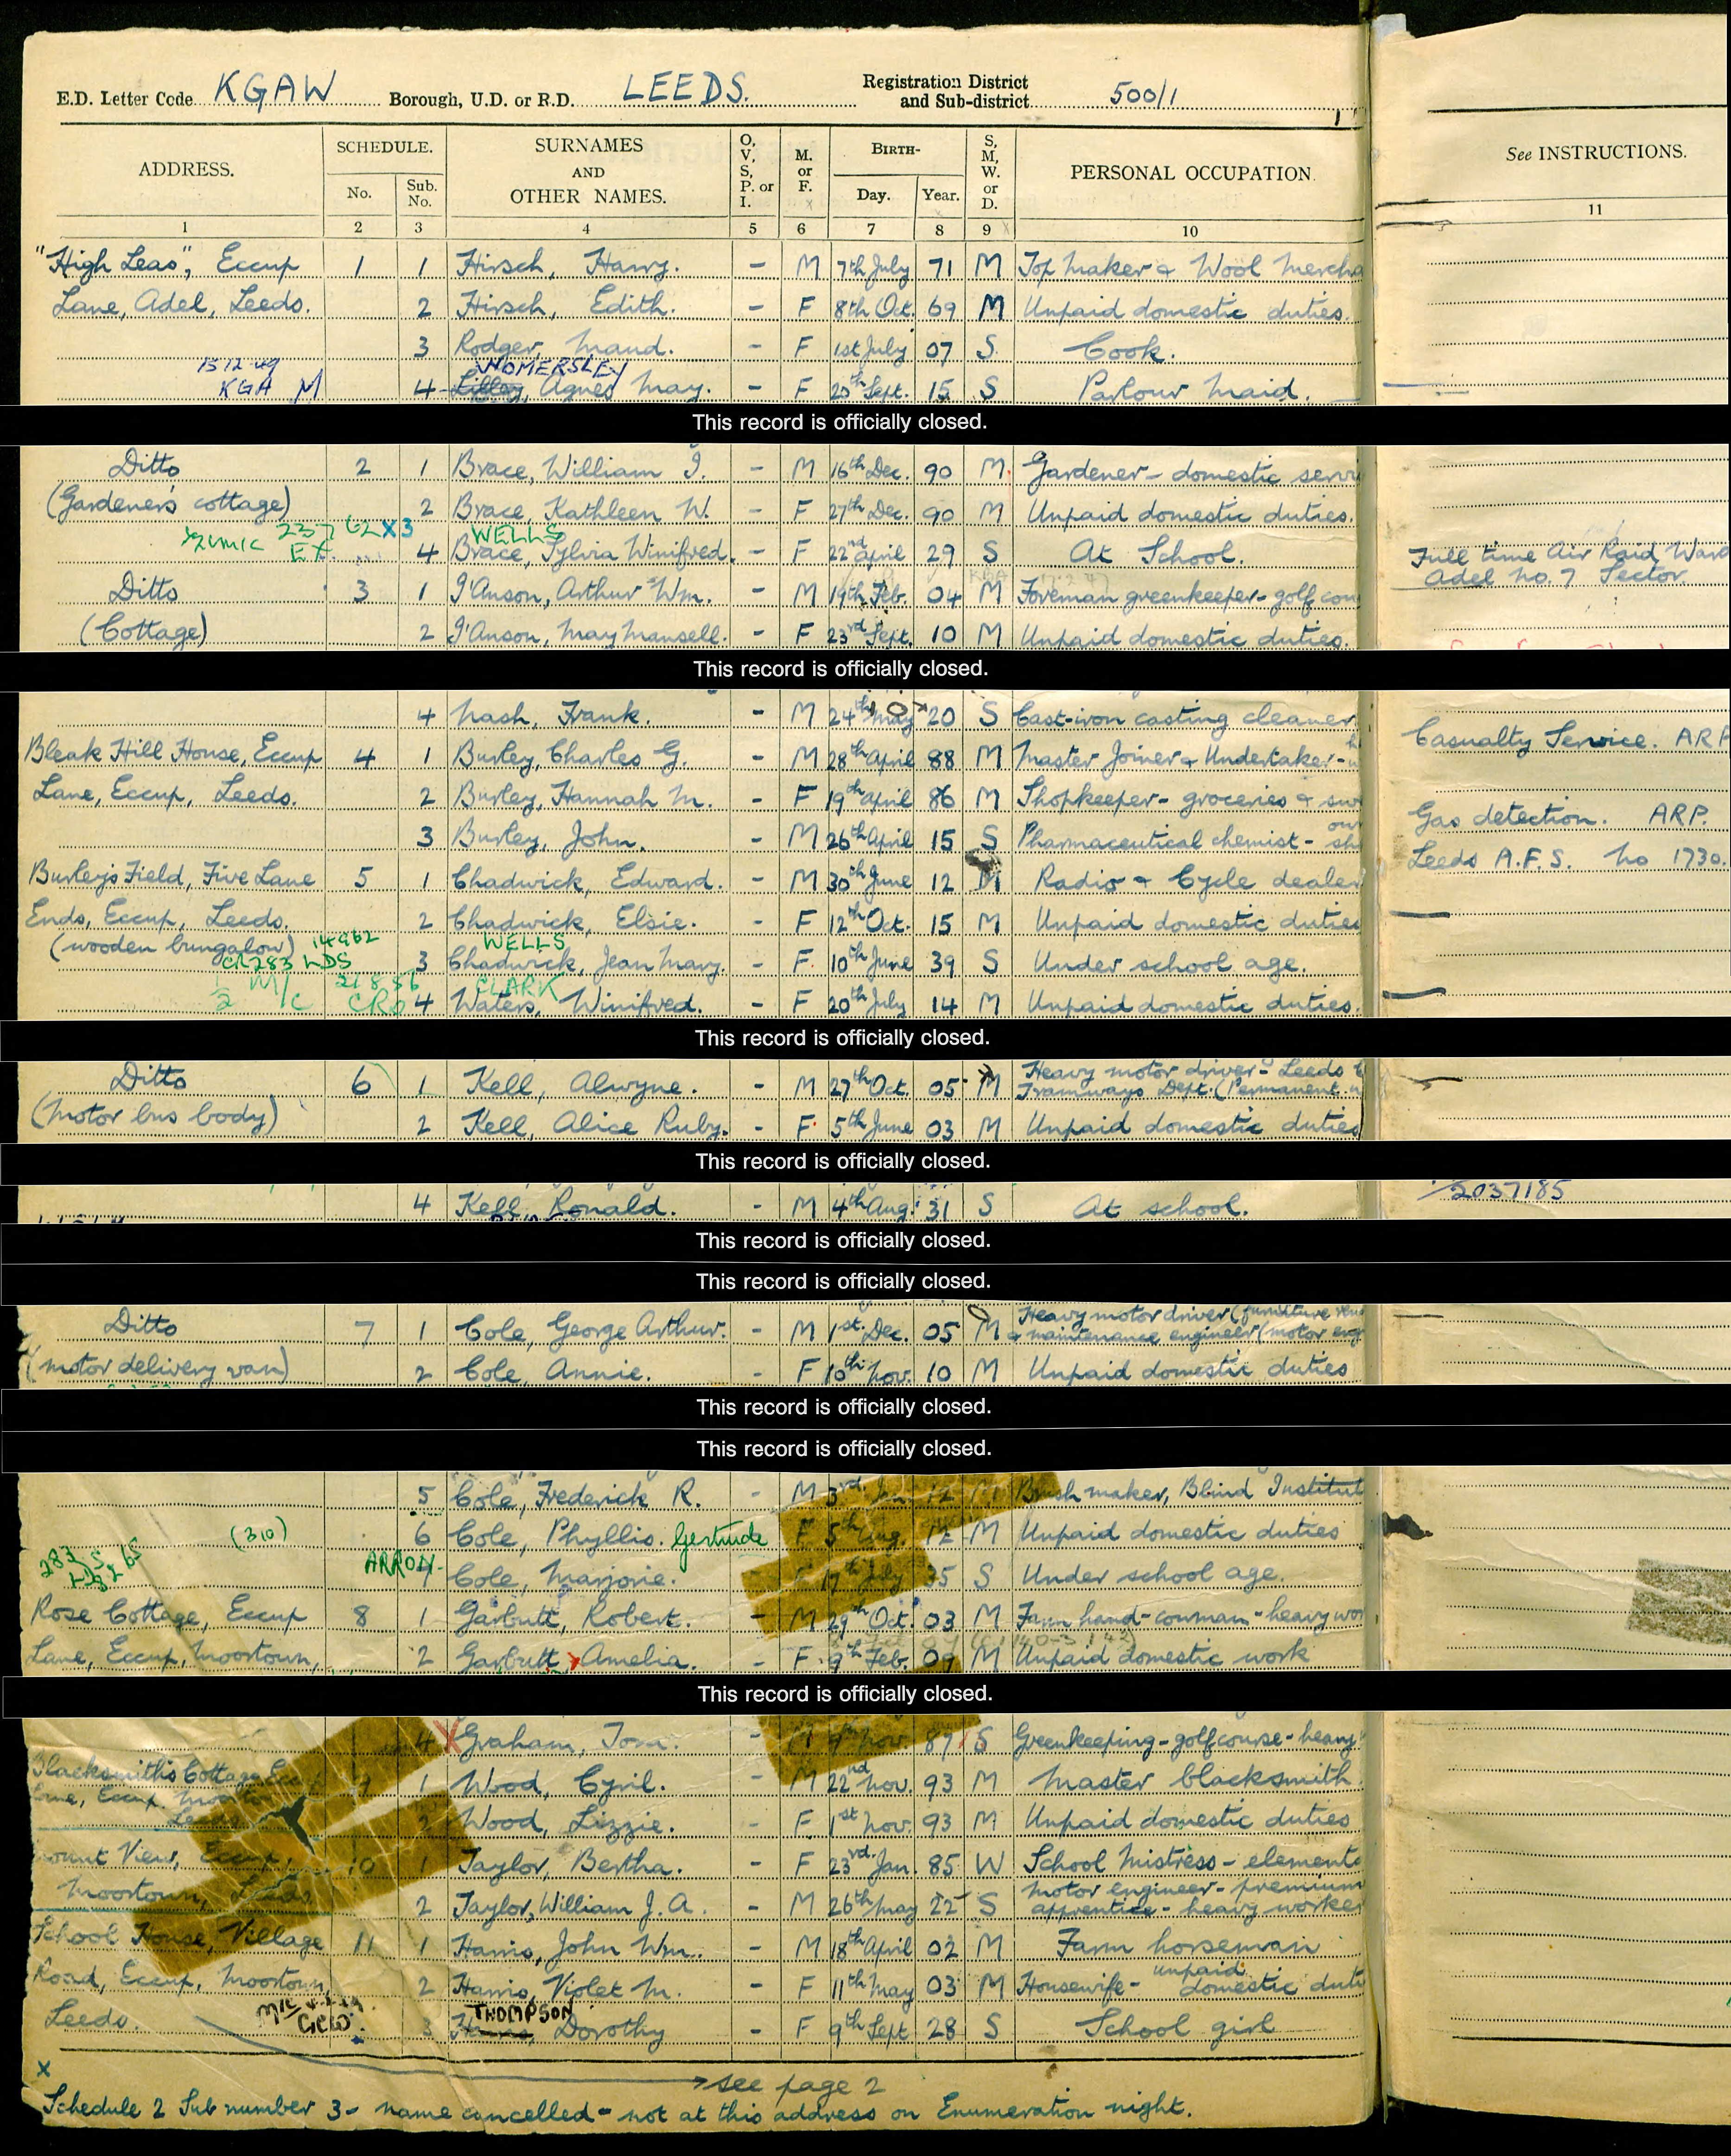 E.D. Letter Code KGAW Borough, U.D. or R.D. LEEDS. Registration District and Sub-district 500/1
1
ADDRESS. SCHEDULE. No. Sub. No. SURNAMES AND OTHER NAMES. O, V, S, P. or I. M. or F. BIRTH- Day. Year. S, M, W. or D. PERSONAL OCCUPATION. See INSTRUCTIONS.
1 2 3 4 5 6 7 8 9 10 11
"High Leas", Eccup 1 1 Hirsch, Harry. - M 7th July 71 M Top Maker & Wool Mercha
Lane, Adel, Leeds. 2 Hirsch, Edith. - F 8th Oct. 69 M Unpaid domestic duties.
3 Rodger, Maud. - F 1st July 07 S. Cook.
15 12 49 WOMERSLEY
KGA M 4 Agnes May. - F 20th Sept. 15 S Parlour Maid.
This record is officially closed.
Ditto 2 1 Brace, William J. - M 16th Dec. 90 M. Gardener - domestic servi
(Gardener's cottage) 2 Brace, Kathleen W. - F 27th Dec. 90 M Unpaid domestic duties.
237 62 X3 WELLS
EX 4 Brace, Sylvia Winifred. - F 22nd April 29 S At School. Full time Air Raid Ward
Ditto 3 1 I'Anson, Arthur Wm. - M 19th Feb. 04 M Foreman greenkeeper - golf cou Adel No. 7 Sector.
(Cottage) 2 I'Anson, May Mansell. - F 23rd Sept. 10 M Unpaid domestic duties.
This record is officially closed.
4 Nash, Frank. - M 24th May 20 S Cast-iron casting cleaner.
Bleak Hill House, Eccup 4 1 Burley, Charles G. - M 28th April 88 M Master Joiner & Undertaker - Casualty Service. ARP
Lane, Eccup, Leeds. 2 Burley, Hannah M. - F 19th April 86 M Shopkeeper - groceries & sw
3 Burley, John. - M 26th April 15 S Pharmaceutical chemist - own sh Gas detection. ARP.
Burley's Field, Five Lane 5 1 Chadwick, Edward. - M 30th June 12 M Radio & Cycle dealer Leeds A.F.S. No 1730.
Ends, Eccup, Leeds. 2 Chadwick, Elsie. - F 12th Oct. 15 M Unpaid domestic duties
(wooden bungalow) 14962 WELLS
CR283 LDS 3 Chadwick, Jean Mary. - F. 10th June 39 S Under school age.
M/C 21 8 56 CLARK
CRO 4 Waters, Winifred. - F 20th July 14 M Unpaid domestic duties.
This record is officially closed.
Ditto 6 1 Kell, Alwyne. - M 27th Oct. 05 M Heavy motor driver - Leeds
Tramways Dept. (Permanent
(motor bus body) 2 Kell, Alice Ruby. - F. 5th June 03 M Unpaid domestic duties
This record is officially closed.
4 Kell, Ronald. - M 4th Aug. 31 S At school. 2037185
This record is officially closed.
This record is officially closed.
Ditto 7 1 Cole, George Arthur. - M 1st. Dec. 05 M Heavy motor driver (furniture
& maintenance engineer (motor eng
(motor delivery van) 2 Cole, Annie. - F 10th Nov. 10 M Unpaid domestic duties
This record is officially closed.
This record is officially closed.
5 Cole, Frederick R. - M 3rd. Jan. 12 M Brush maker, Blind Institut
(310) 6 Cole, Phyllis. Gertrude F 5th Aug. 12 M Unpaid domestic duties
283 ARROW
Cole, Marjorie. F 17th July 35 S Under school age.
Rose Cottage, Eccup 8 1 Garbutt, Robert. - M 29th Oct. 03 M Farm hand - cowman - heavy wor
Lane, Eccup, Moortown, 2 Garbutt, Amelia. - F. 9th Feb. 09 M Unpaid domestic work
This record is officially closed.
4 X Graham, Tom. - M 9th Nov. 87 S Greenkeeping - golf course - heavy
Blacksmith's Cottage, Eccup 9 1 Wood, Cyril. - M 22nd Nov. 93 M Master blacksmith
Lane, Eccup, Moortown
Leeds 2 Wood, Lizzie. - F 1st Nov. 93 M Unpaid domestic duties
Mount View, Eccup, 10 1 Taylor, Bertha. - F 23rd. Jan. 85 W School Mistress - elementa
Moortown, Leeds 2 Taylor, William J. A. - M 26th May 22 S Motor engineer - premium
apprentice - heavy worker
School House, Village 11 1 Harris, John Wm. - M 18th April 02 M Farm horseman
Road, Eccup, Moortown, 2 Harris, Violet M. - F 11th May 03 M Housewife - unpaid domestic duti
THOMPSON
Leeds. 3 Dorothy - F 9th Sept 28 S School girl
see page 2
X
Schedule 2 Sub number 3 - name cancelled - not at this address on Enumeration night.